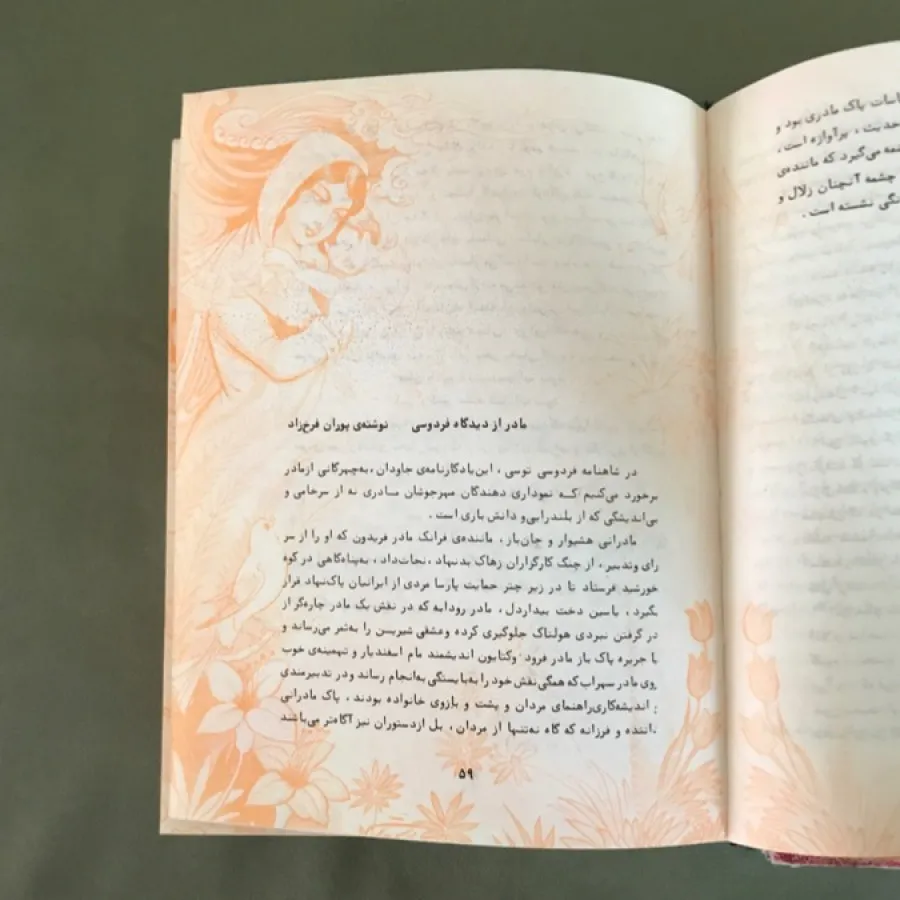 اسات پاک مادری بود و
حدیت ، پرآوازه است ،
مه می‌گیرد که ماننده‌ی
چشمه آنچنان زلال و
نگی نشسته است .
مادر از دیدگاه فردوسی نوشته‌ی پوران فرخ‌زاد
در شاهنامه فردوسی توسی ، این‌یادگارنامه‌ی جاودان ،به‌چهرگانی ازمادر
برخورد می‌کنیم کـه نموداری دهندگان مهرجوشان مـادری نه از سرخامی و
بی‌اندیشگی که از بلندرایی‌و دانش یاری است .
مادرانی هشیوار و جان‌باز، ماننده‌ی فرانک مادر فریدون که او را از سر
رای وتدبیر ، از چنگ کارگزاران زهاک بدنهاد، نجات‌داد، به‌پناه‌گاهی در کوه
خورشید فرستاد تا در زیر چتر حمایت پارسا مردی از ایرانیان پاک‌نهاد قرار
بگیرد ، یاسین دخت بیداردل، مادر رودابه که در نقش یک مادر چاره‌گر از
در گرفتن نبردی هولناک جلوگیری کرده وعشقی شیریـن را به‌ثمر می‌رساند و
یا جریره پاک باز مادر فرود وکتایون اندیشمند مام اسفندیار و تهمینه‌ی خوب
روی مادر سهراب که همگی‌نقش خود را به‌بایستگی به‌انجام رساند ودر تدبیرمندی
اندیشه‌کاری‌راهنمای مردان و پشت و بازوی خانواده بودند ، پاک مادرانی
داننده و فرزانه که گاه نه‌تنها از مردان، بل ازدستوران نیز آگاه‌تر می‌باشند
۵۹